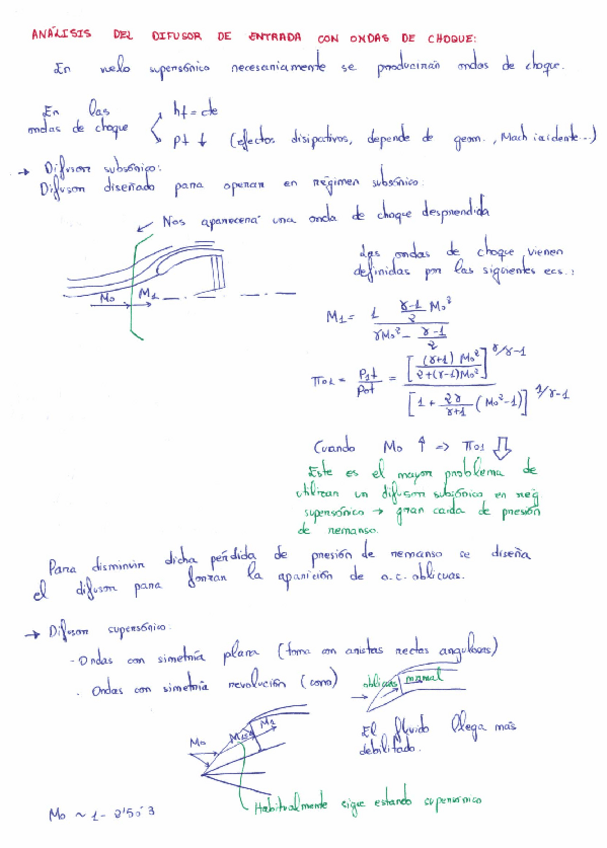 ANÁLISIS DEL DIFUSOR DE ENTRADA CON ONDAS DE CHOQUE:
En vuelo supersónico necesariamente se producirán ondas de choque.
En las ondas de choque
ht = cte
pt ↓ (efectos disipativos, depende de geom., Mach incidente...)
→ Difusor subsónico:
Difusor diseñado para operar en régimen subsónico.
Nos aparecerá una onda de choque desprendida
Las ondas de choque vienen
definidas por las siguientes ecs.:
M0 M1
M1 = 1 γ-1/2 M0² / γM0² - γ-1/2
π01 = P1t/P0t = [(γ+1) M0² / 2+(γ-1)M0²]^γ/γ-1 / [1 + 2γ/γ+1 (M0²-1)]^1/γ-1
Cuando M0 ↑ => π01 ⇓
Este es el mayor problema de
utilizar un difusor subsónico en reg
supersónico → gran caída de presión
de remanso.
Para disminuir dicha pérdida de presión de remanso se diseña
el difusor para forzar la aparición de o.c. oblicuas.
→ Difusor supersónico:
- Ondas con simetría plana (toma con aristas rectas angulosas)
· Ondas con simetría revolución (cono)
oblicuas normal
M0 M1
El fluido llega más
debilitado.
Habitualmente sigue estando supersónico
M0 ~ 1 - 2'5 ó 3